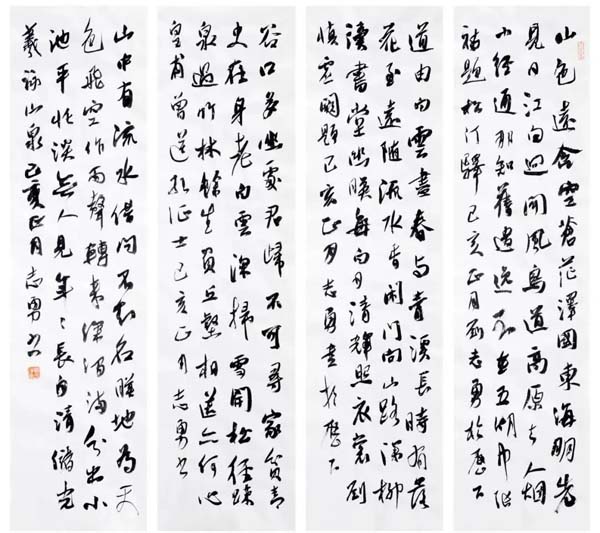 山色遠含空蒼茫澤國東海明先
見日江白迥聞風鳥道高原去人烟
小徑通那知舊遺逸不在五湖中張
祜題松汀驛己亥正月劉志勇於歷下
道由白雲盡春與青溪長時有落
花至遠隨流水香閑門向山路深柳
讀書堂幽映每白日清輝照衣裳劉
慎虛闕題己亥正月志勇書於歷下
谷口多幽處君歸不可尋家貧青
史在身老白雲深掃雪開松徑疏
泉過竹林餘生負丘壑相送亦何心
皇甫曾送孔征士己亥正月志勇書
山中有流水借問不知名映地為天
色飛空作雨聲轉來深澗滿分出小
池平恬淡無人見年々長自清儲光
羲詠山泉己亥正月志勇書